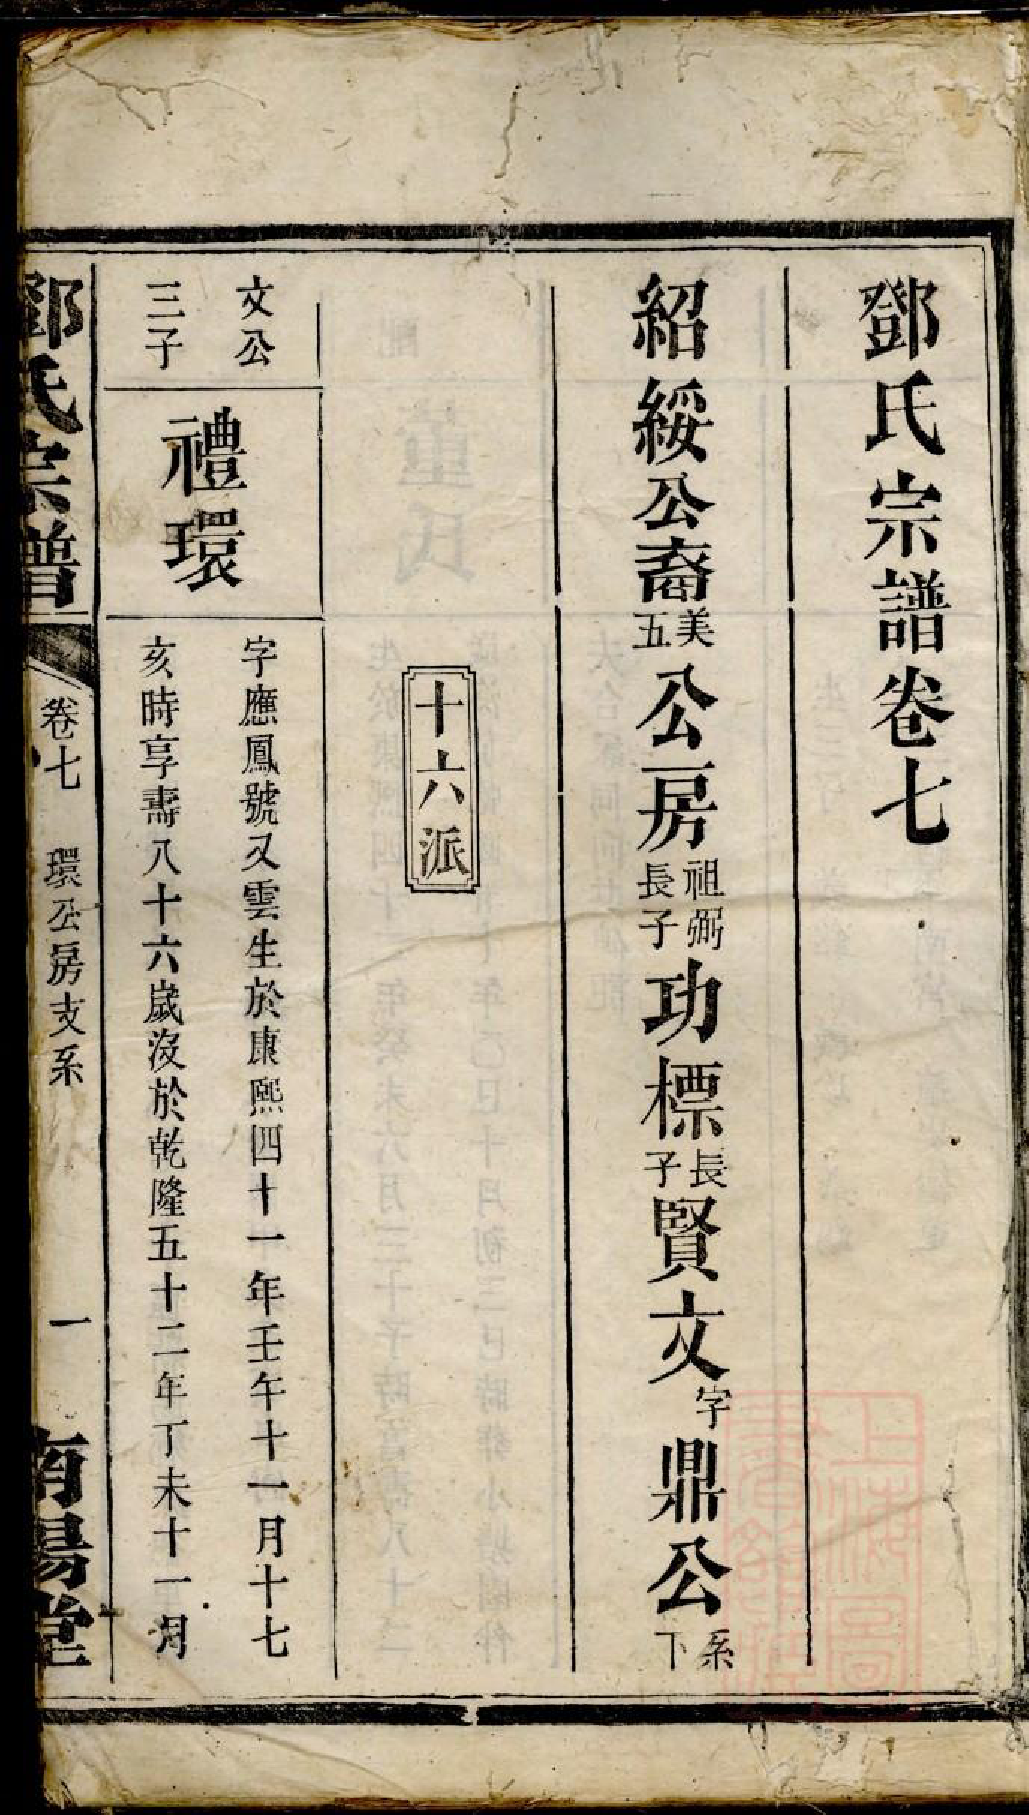 鄧氏宗譜卷七
紹綏公裔美五公房祖弼長子功標長子賢文字鼎公系下
十六派
文公
三子
禮環
字應鳳號又雲生於康熙四十一年壬午十一月十七
亥時享壽八十六歲沒於乾隆五十二年丁未十一月
鄧氏宗譜
卷七 環公房支系
一
南陽堂